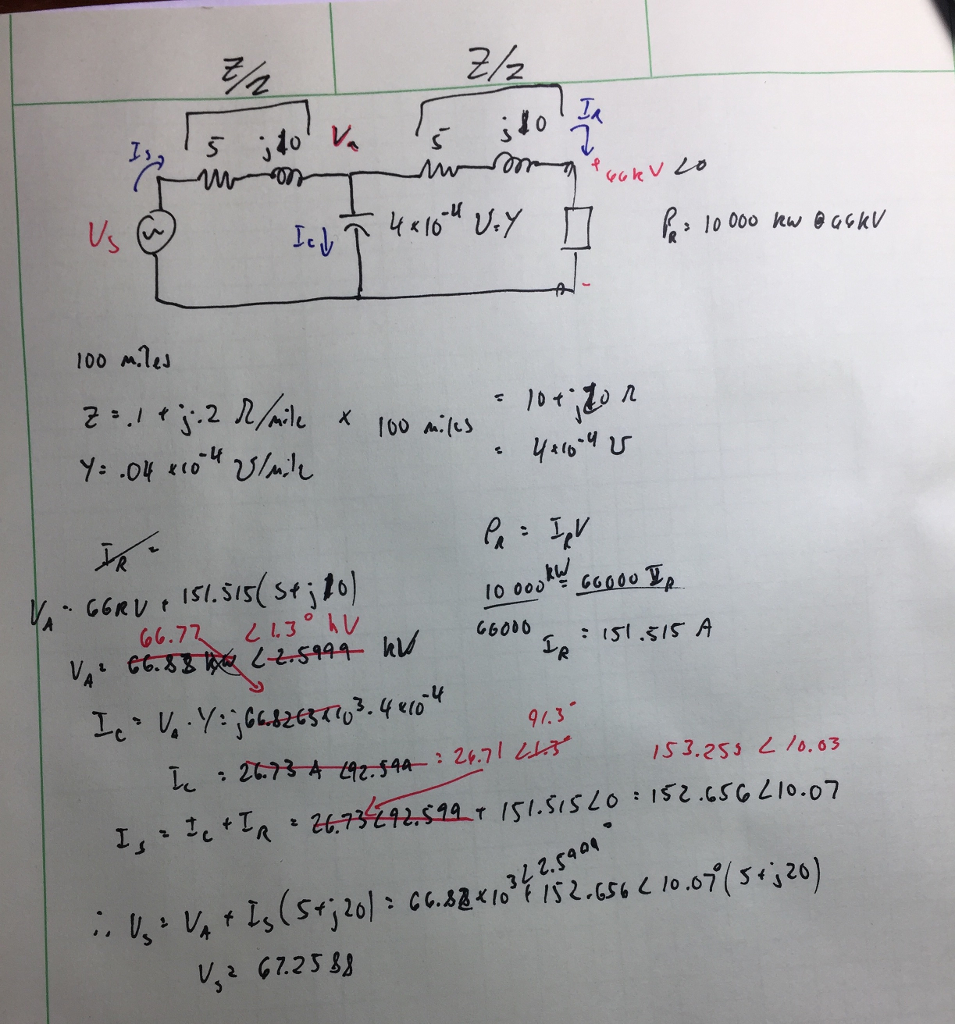 Z/2 Z/2
5 j10 5 j10
I_s V_a I_R
+ 66kV ∠0
V_S I_c↓ 4×10⁻⁴ ℧=Y P_R = 10 000 kW @ 66kV
-
100 miles
Z = .1 + j.2 Ω/mile × 100 miles = 10 + j20 Ω
Y = .04 ×10⁻⁴ ℧/mile = 4×10⁻⁴ ℧
I_R = P_R = I_R V
V_A = 66kV + 151.515(5+j10) 10 000 kW = 66000 I_R
66.77 ∠1.3° kV 66000
V_A = 66.88 ∠2.5999 kV I_R = 151.515 A
I_c = V_A · Y = j66.8263×10³ · 4×10⁻⁴
91.3°
I_c = 26.73 A ∠92.599 = 26.71 ∠1.3° 153.255 ∠10.03
I_s = I_c + I_R = 26.73∠92.599 + 151.515∠0 = 152.656 ∠10.07
∴ V_s = V_A + I_s (5+j20) = 66.88×10³∠2.5999° + 152.656 ∠10.07° (5+j20)
V_s = 67.2588